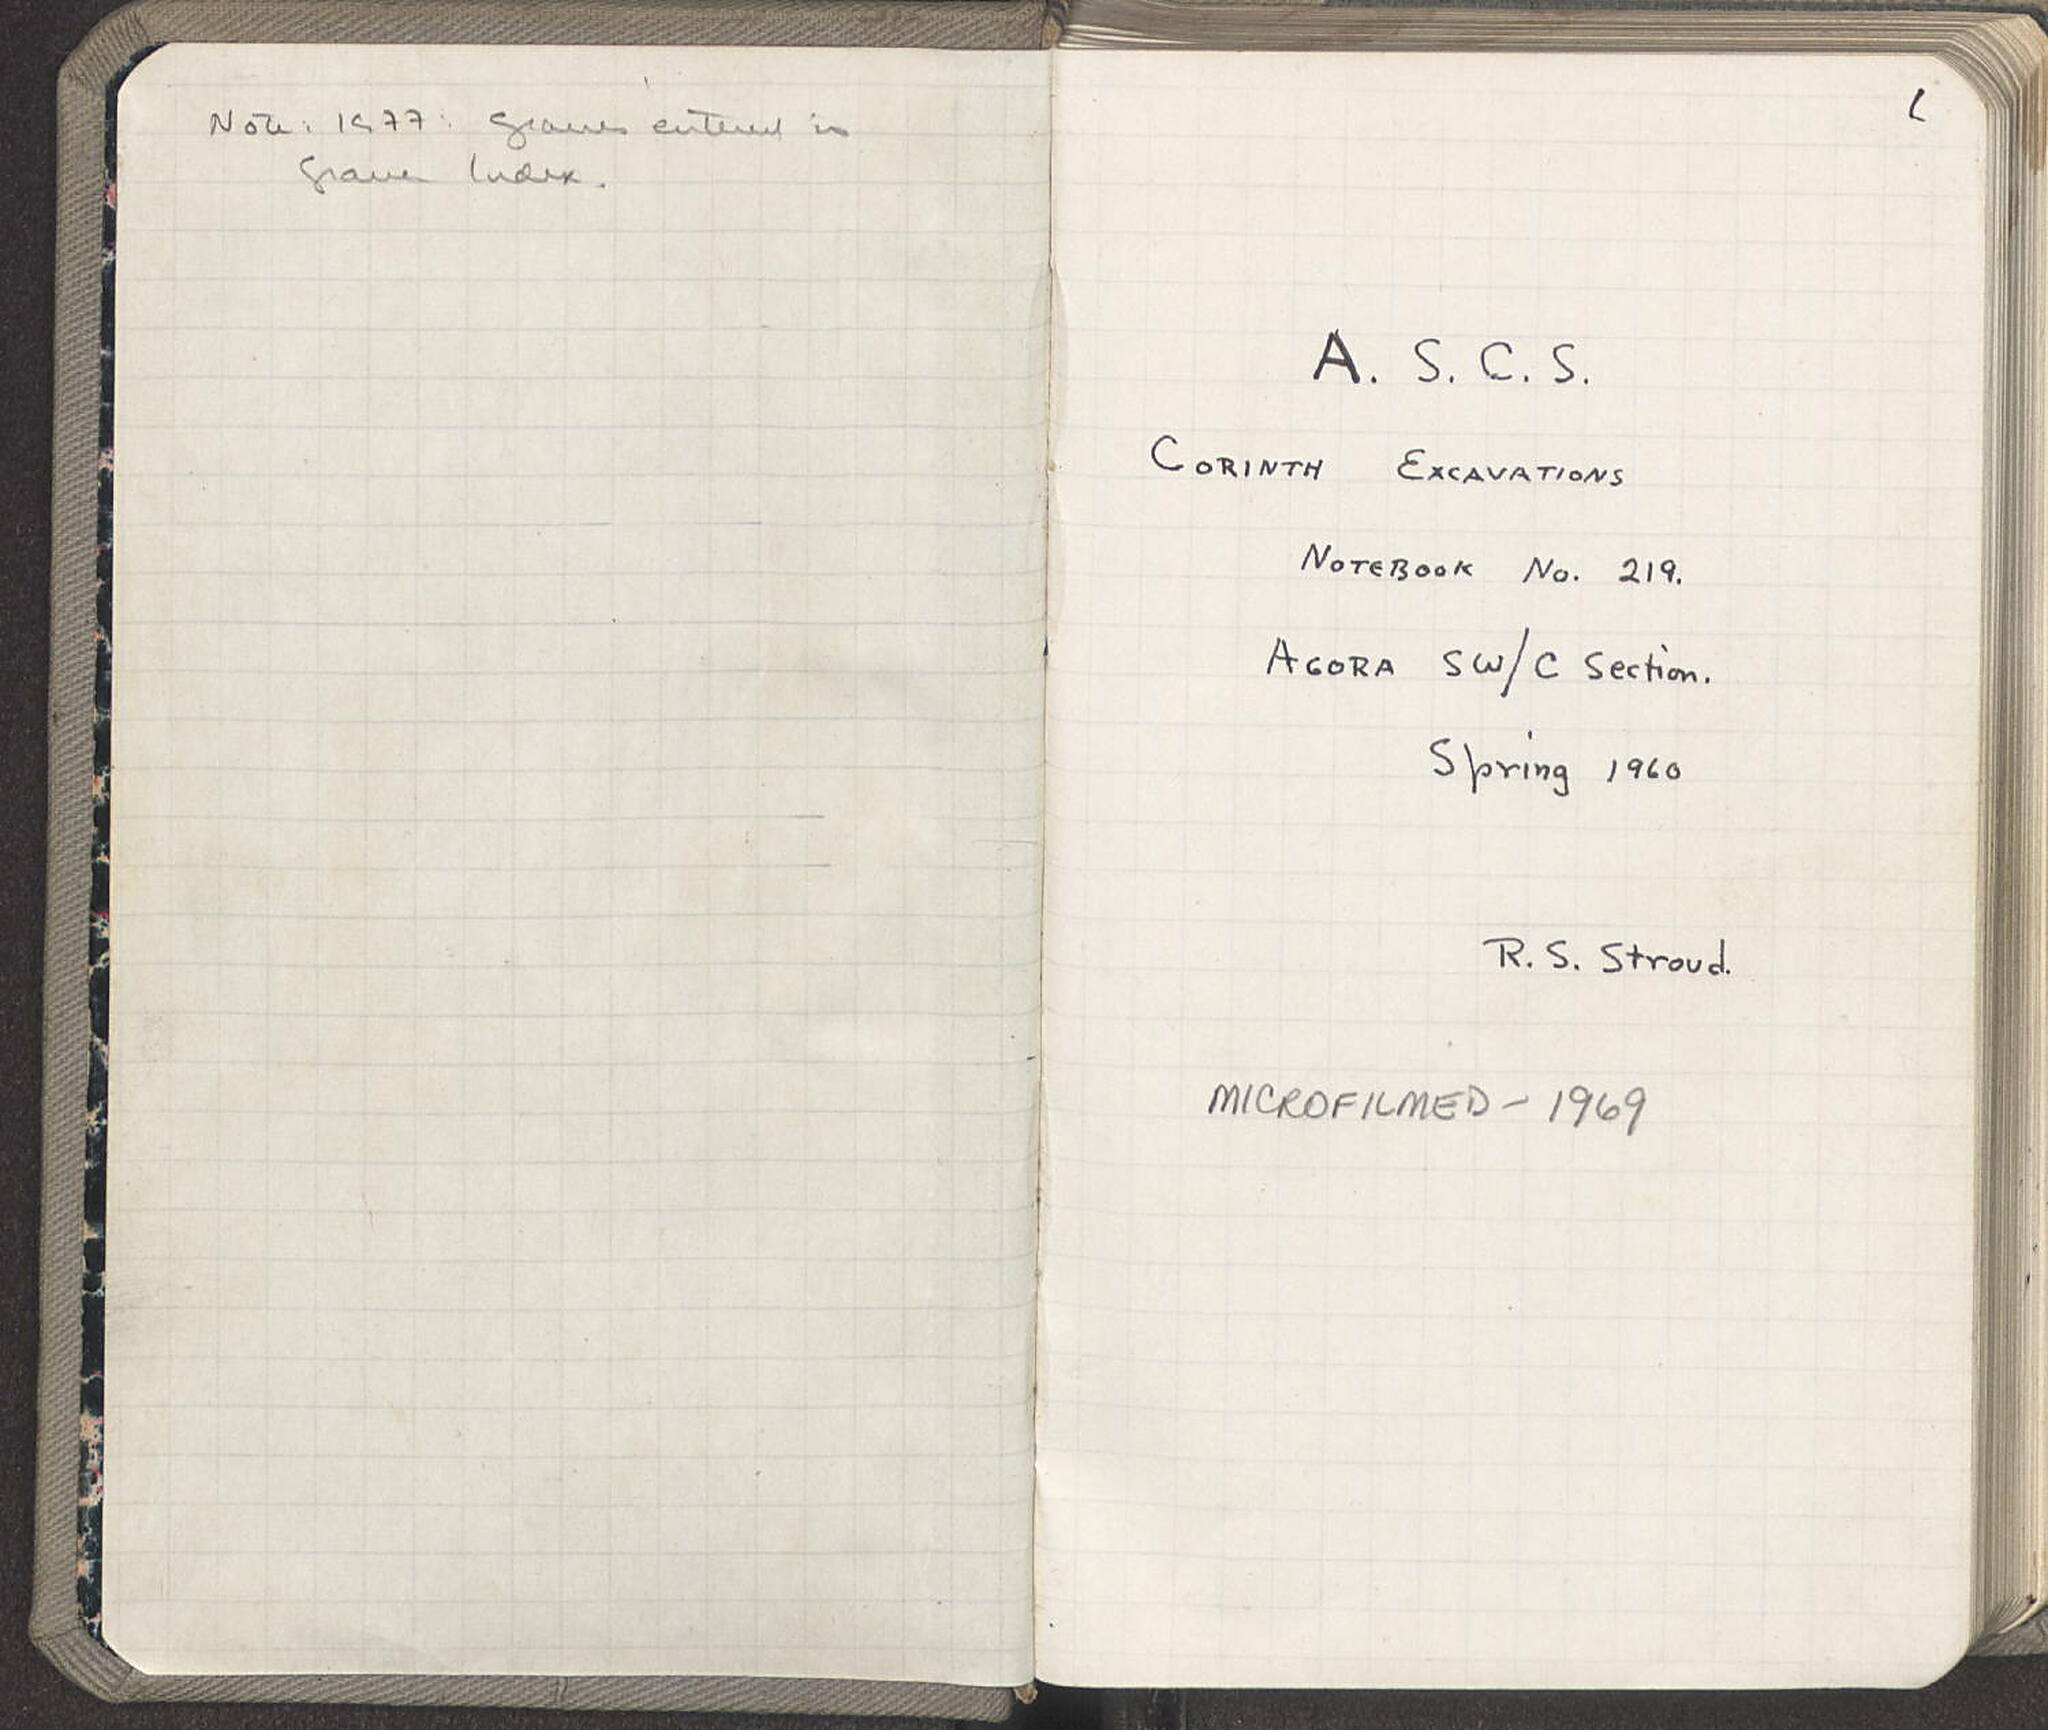 Note: 1977: Graves entered in
Grave Index.
1
A. S. C. S.
CORINTH EXCAVATIONS
NOTEBOOK No. 219.
AGORA SW/C Section.
Spring 1960
R. S. Stroud.
MICROFILMED - 1969